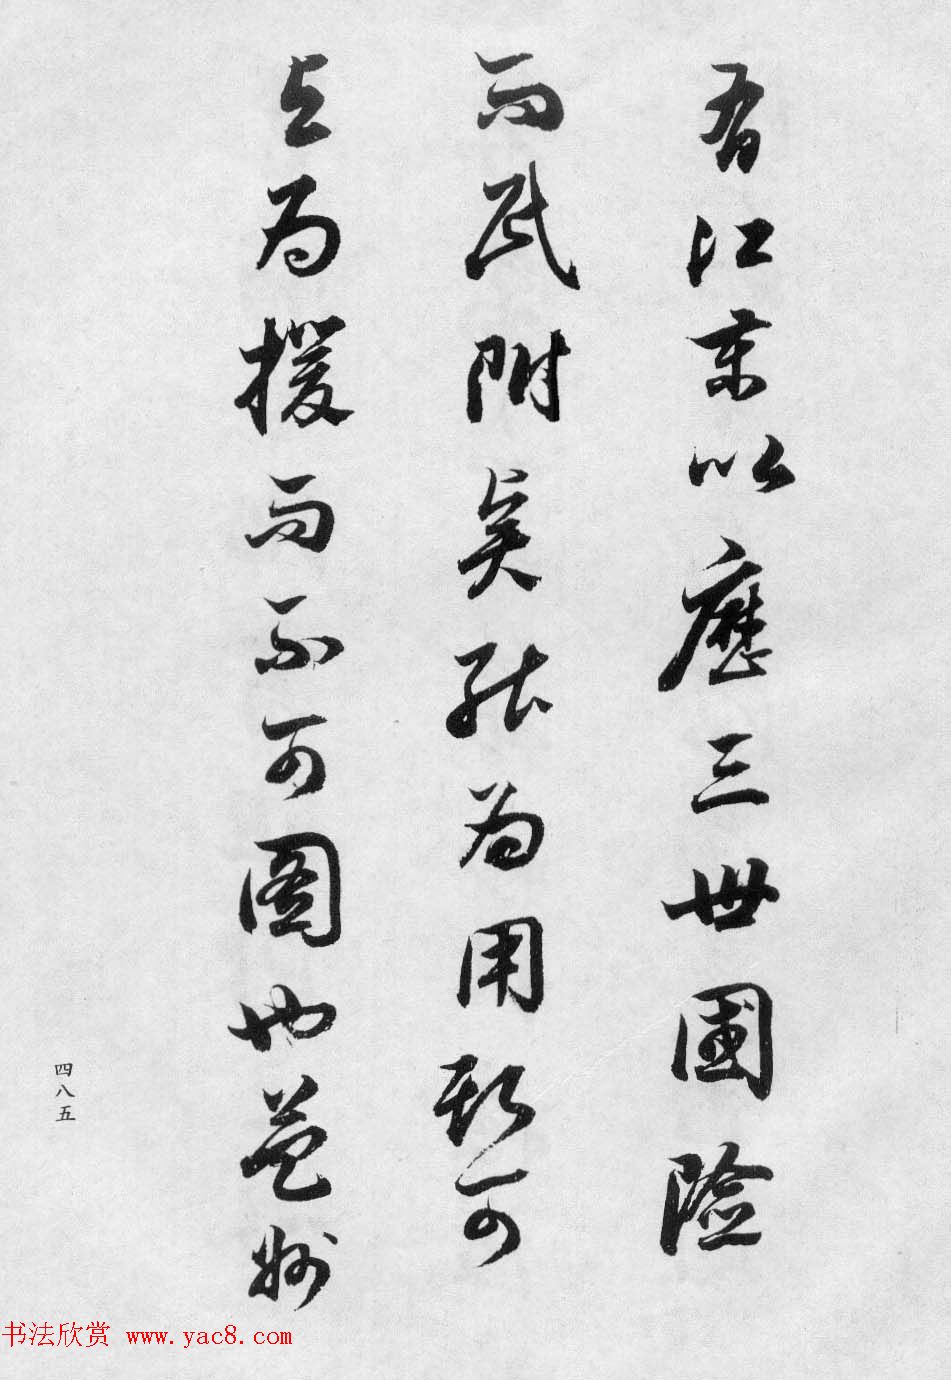 有江東以歷三世國險
而民附賢能為用斯可
与為援而不可圖也益州
四八五
书法欣赏 www.yac8.com